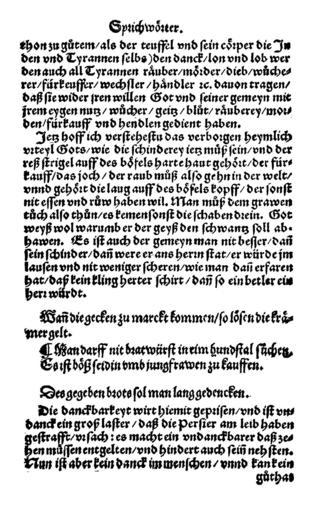 Sprichwörter.
thon zu gůtem/als der teuffel vnd sein cörper die Jn
den vnd Tyrannen selbs)den danck/lon vnd lob wer
den auch all Tyrannen räuber/mörder/dieb/wůche-
rer/fürkeuffer/wechsler/händler ꝛc. dauon tragen/
daß sie wider jren willen Got vnd seiner gemeyn mit
jrem eygen nutz/wůcher/geitz/blůt/räuberey/mor-
den/fürkauff vnd hendlen gedient haben.
Jetz hoff ich verstehestu das verborgen heymlich
vrteyl Gots/wie die schinderey jetz můß sein/vnd der
reß strigel auff des böfels harte haut gehört/der für-
kauff/das joch/der raub můß also gehn in der welt/
vnnd gehört die laug auff des böfels kopff/der sonst
nit essen vnd růw haben wil. Man můß dem grawen
tůch also thůn/es kemen sonst die schaben drein. Got
weyß wol warumb er der geyß den schwantz soll ab-
hawen. Es ist auch der gemeyn man nit besser/dañ
sein schinder/dañ were er ans herrn stat/er würde jm
lausen vnd nit weniger scheren/wie man dañ erfaren
hat/daß kein kling herter schirt/dañ so ein betler ein
herr würdt.
Wañ die gecken zu marckt kommen/so lösen die krä-
mer gelt.
Man darff nit bratwürst in eim hundstal sůchen.
Es ist böß seidin vmb jungfrawen zu kauffen.
Des gegeben brots sol man lang gedencken.
Die danckbarkeyt wirt hiemit geprisen/vnd ist vn-
danck ein groß laster/daß die Persier am leib haben
gestrafft/vrsach: es macht ein vndanckbarer daß ze-
hen müssen entgelten/vnd hindert auch sein nehsten.
Nun ist aber kein danck im menschen/vnnd kan kein
gůthat